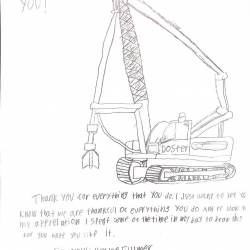 YOU!
DOSTER
Thank you for everything that you do. I just want to let you
know that we are thankful of everything you do and to show
my appreciation I spent some of the time in my day to draw this
for you hope you like it.